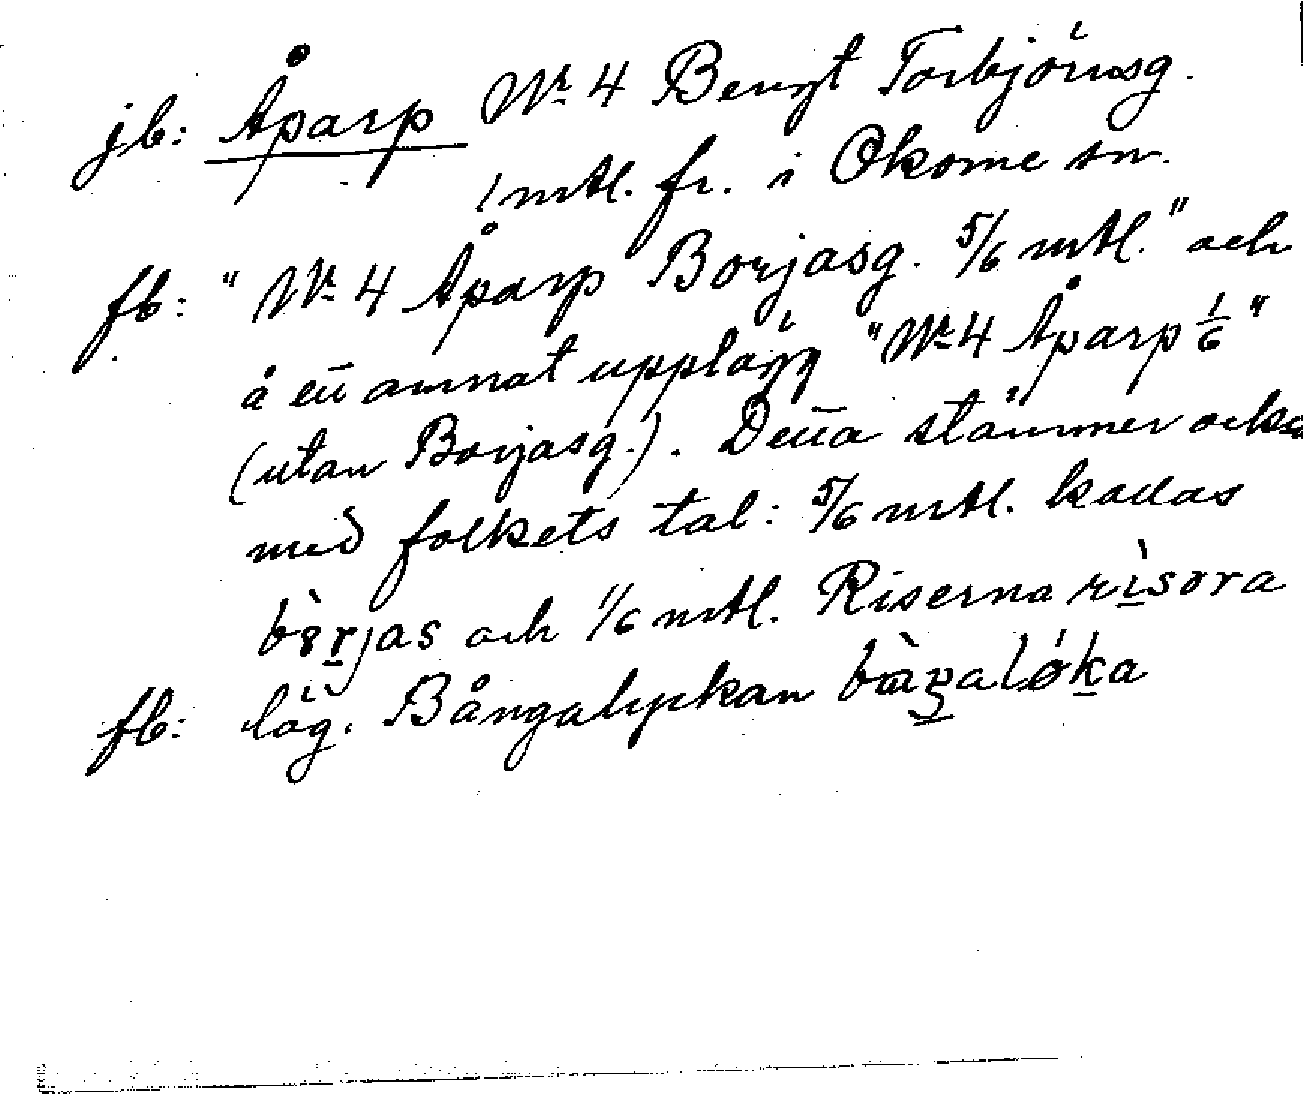 jb: Åparp Nr 4 Bengt Torbjörnsg.
1 mtl. fr. i Okome sn.
fb: "Nr 4 Åparp Borjasg. 5/6 mtl." och
å ett annat upplägg "Nr 4 Åparp 1/6"
(utan Borjasg.). Detta stämmer också
med folkets tal: 5/6 mtl. kallas
och 1/6 mtl. Riserna rìsora
fb: läg. Bångalyckan